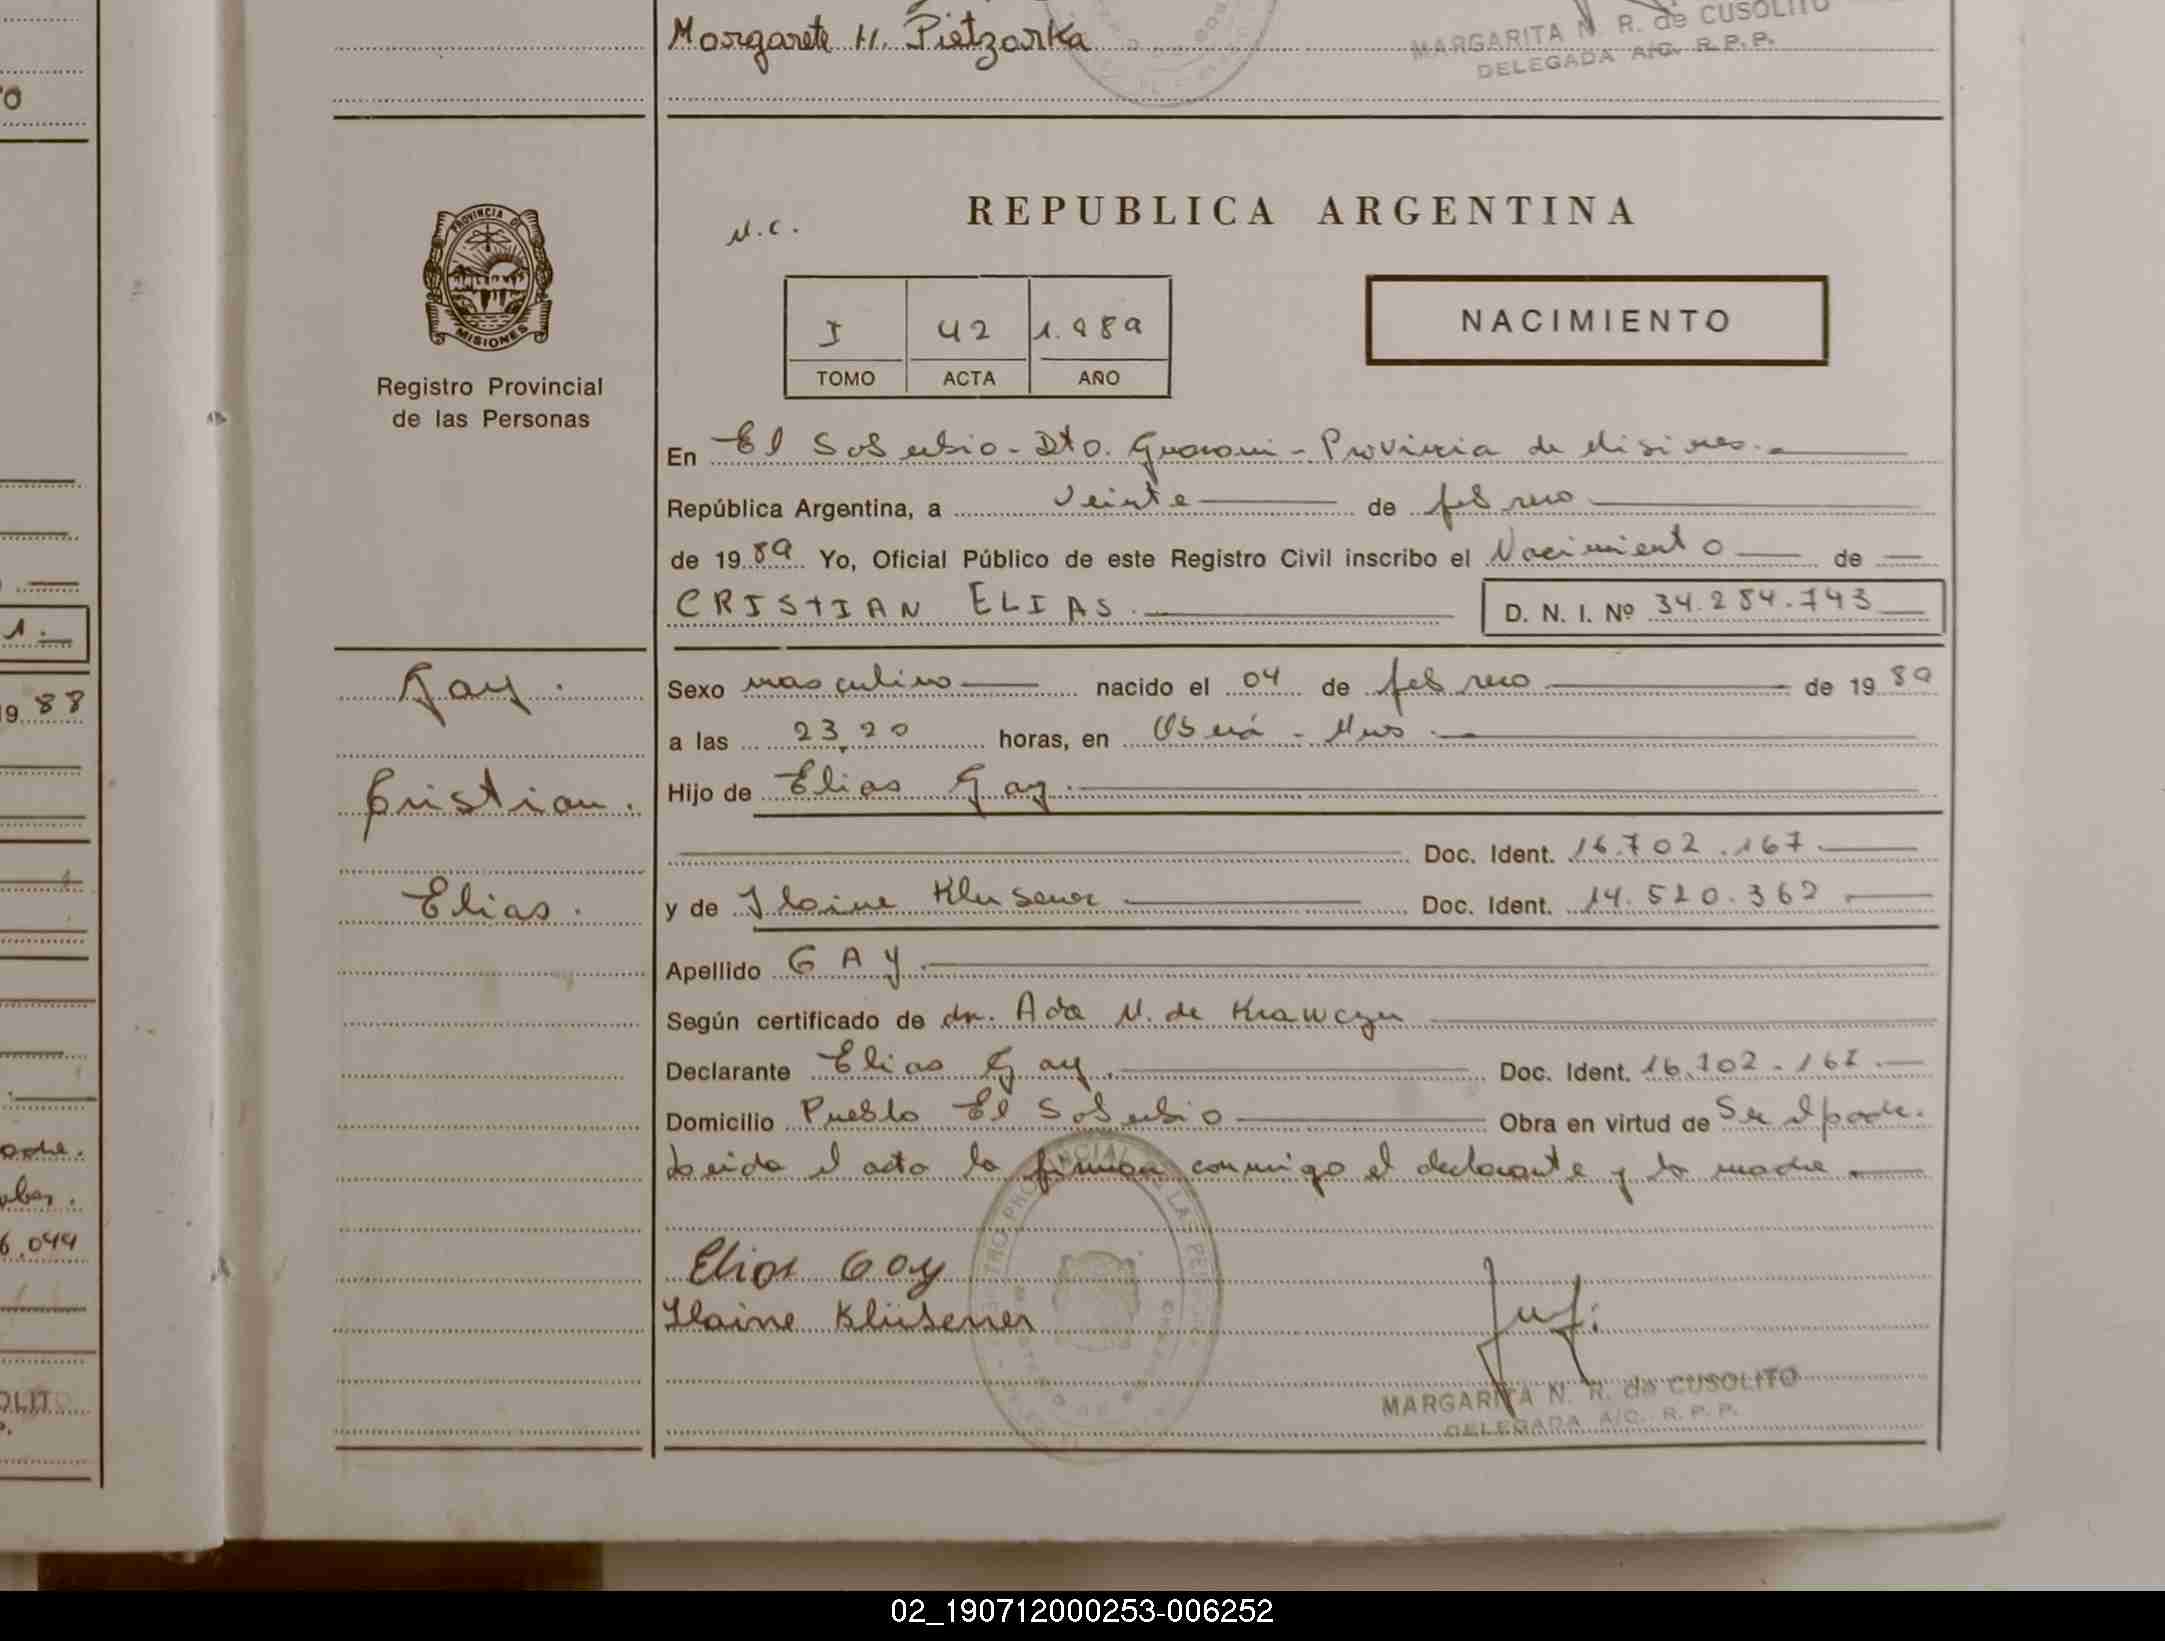 Margarete H. Pietzarka
MARGARITA N. R. de CUSOLITO
DELEGADA A/C. R. P. P.
TO
PROVINCIA DE MISIONES
Registro Provincial
de las Personas
N.C.
REPUBLICA ARGENTINA
I 42 1.989
TOMO ACTA AÑO
NACIMIENTO
En El Soberbio - Dto. Guarani - Provincia de Misiones.-
República Argentina, a veinte de febrero
de 1989 Yo, Oficial Público de este Registro Civil inscribo el Nacimiento de
CRISTIAN ELIAS. D. N. I. Nº 34.284.743
1.
Gay.
Cristian.
Elias.
Sexo masculino nacido el 04 de febrero de 1989
19 88
a las 23,20 horas, en Oberá - Mnes.
Hijo de Elias Gay.
Doc. Ident. 16.702.167.
y de Ilaine Klusener Doc. Ident. 14.520.362
Apellido GAY.
Según certificado de dra. Ada N. de Krawczyn
Declarante Elias Gay. Doc. Ident. 16.702.167.
Domicilio Pueblo El Soberbio Obra en virtud de Ser el padre.
Leida el acta la firman conmigo el declarante y la madre.
6.044
Elias Gay
Ilaine Klüsener
MARGARITA N. R. de CUSOLITO
DELEGADA A/C. R. P. P.
OLITO
02_190712000253-006252